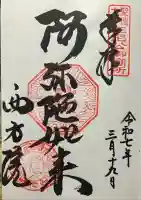 奉拝
阿弥陀如来
西方院
令和七年
三月十九日